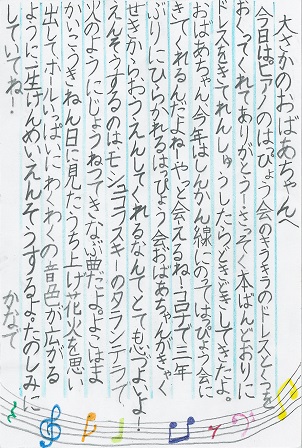 大さかのおばあちゃんへ
今日は、ピアノのはっぴょう会のキラキラのドレスとくつを
おくってくれてありがとう！さっそく本ばんどおりに
ドレスをきてれんしゅうしたらどきどきしてきたよ。
おばあちゃん、今年はしんかん線にのってはっぴょう会に
きてくれるんだよね！やっと会えるね！コロナで三年
ぶりにひらかれるはっぴょう会おばあちゃんがきゃく
せきからおうえんしてくれるなんてとても心づよいよ！
えんそうするのはモシュコフスキーのタランテラで、
火のようにじょうねつてきなぶ曲だよ。よこはま
かいこうきねん日に見たうち上げ花火を思い
出してホールいっぱいにわくわくの音色が広がる
ように一生けんめいえんそうするよ。たのしみに
していてね！
かなで